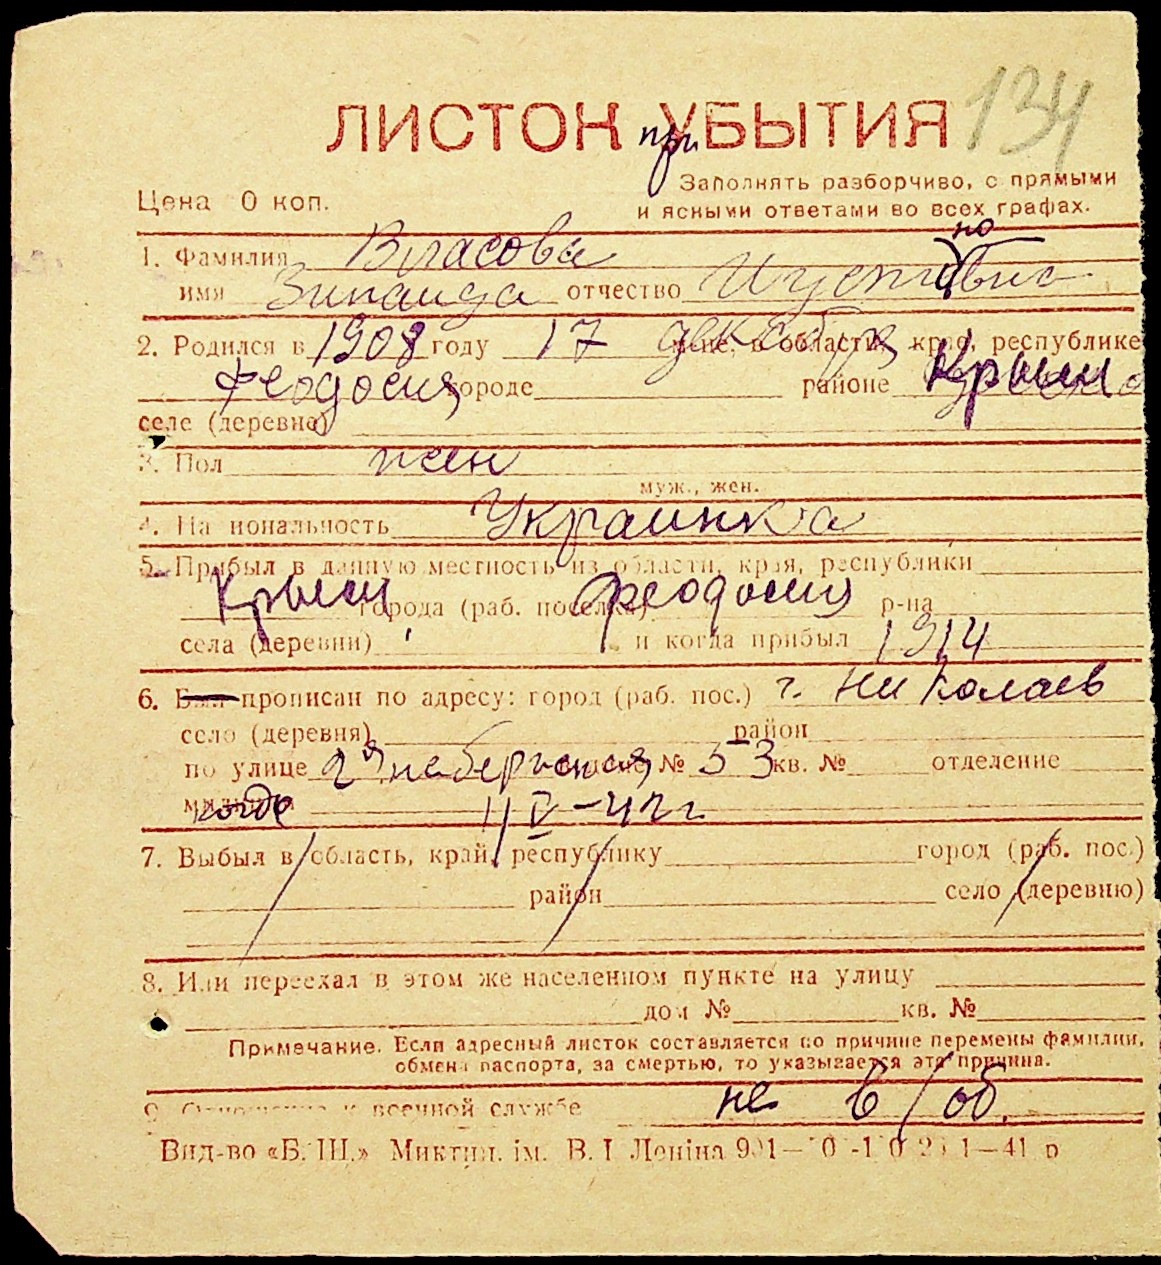 134
ЛИСТОК УБЫТИЯ
при
Заполнять разборчиво, с прямыми
Цена 0 коп.
и ясными ответами во всех графах.
1. Фамилия Власова
имя Зинаида отчество
но
2. Родился в 1908 году 17 декабря области, край, республике
Феодосия городе районе Крым
селе (деревне)
3. Пол жен
муж., жен.
4. На иональность Украинка
5. Прибыл в данную местность из области, края, республики
Крым города (раб. поселка) Феодосия р-на
села (деревни) и когда прибыл 1914
6. Был прописан по адресу: город (раб. пос.) г. Николаев
село (деревня) район
по улице 2я набережная № 53 кв. № отделение
когда 11 IV-42 г
7. Выбыл в область, край, республику город (раб. пос.)
район село (деревню)
8. Или переехал в этом же населенном пункте на улицу
дом № кв. №
Примечание. Если адресный листок составляется по причине перемены фамилии,
обмена паспорта, за смертью, то указывается эта причина.
9. Отношение к военной службе не в/об.
Вид-во «Б. Ш.» ім. В. І Леніна